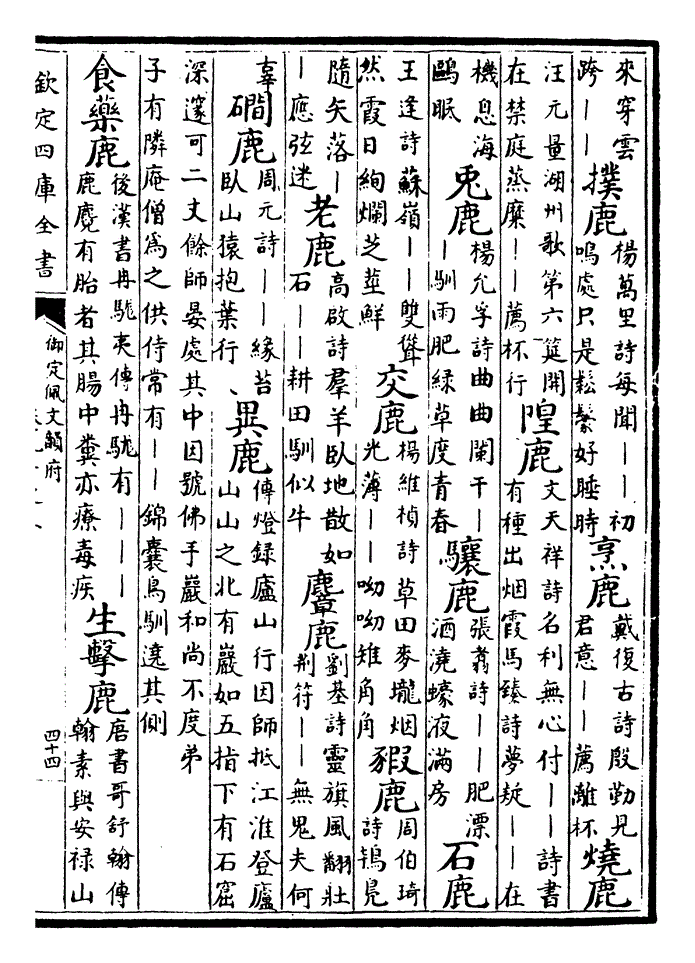 來穿雲
跨丨丨
撲鹿
楊萬里詩每聞丨丨初
鳴處只是鬆鬟好睡時
烹鹿
戴復古詩殷勤見
君意丨丨薦離杯
燒鹿
汪元量湖州歌第六筵開
在禁庭蒸糜丨丨薦杯行
隍鹿
文天祥詩名利無心付丨丨詩書
有種出烟霞馬臻詩夢疑丨丨在
機息海
鷗眠
兎鹿
楊允孚詩曲曲闌干丨
丨馴雨肥緑草度青春
驤鹿
張翥詩丨丨肥漂
酒澆蠔液滿房
石鹿
王逢詩蘇嶺丨丨雙聳
然霞日絢爛芝莖鮮
交鹿
楊維楨詩草田麥壠烟
光薄丨丨呦呦雉角角
豭鹿
周伯琦
詩鴇鳧
隨矢落丨
丨應弦迷
老鹿
高啟詩羣羊臥地散如
石丨丨耕田馴似牛
麞鹿
劉基詩靈旗風翻壯
荆符丨丨無鬼夫何
辜
磵鹿
周元詩丨丨緣苔
臥山猿抱葉行
異鹿
傳燈録廬山行因師抵江淮登廬
山山之北有巖如五指下有石窟
深邃可二丈餘師晏處其中因號佛手巖和尚不度弟
子有隣庵僧為之供侍常有丨丨錦囊鳥馴遶其側
食藥鹿
後漢書冉駹夷傳冉駹有丨丨丨
鹿麑有胎者其腸中糞亦療毒疾
生擊鹿
唐書哥舒翰傳
翰素與安禄山
欽定四庫全書
御定佩文韻府
四十四